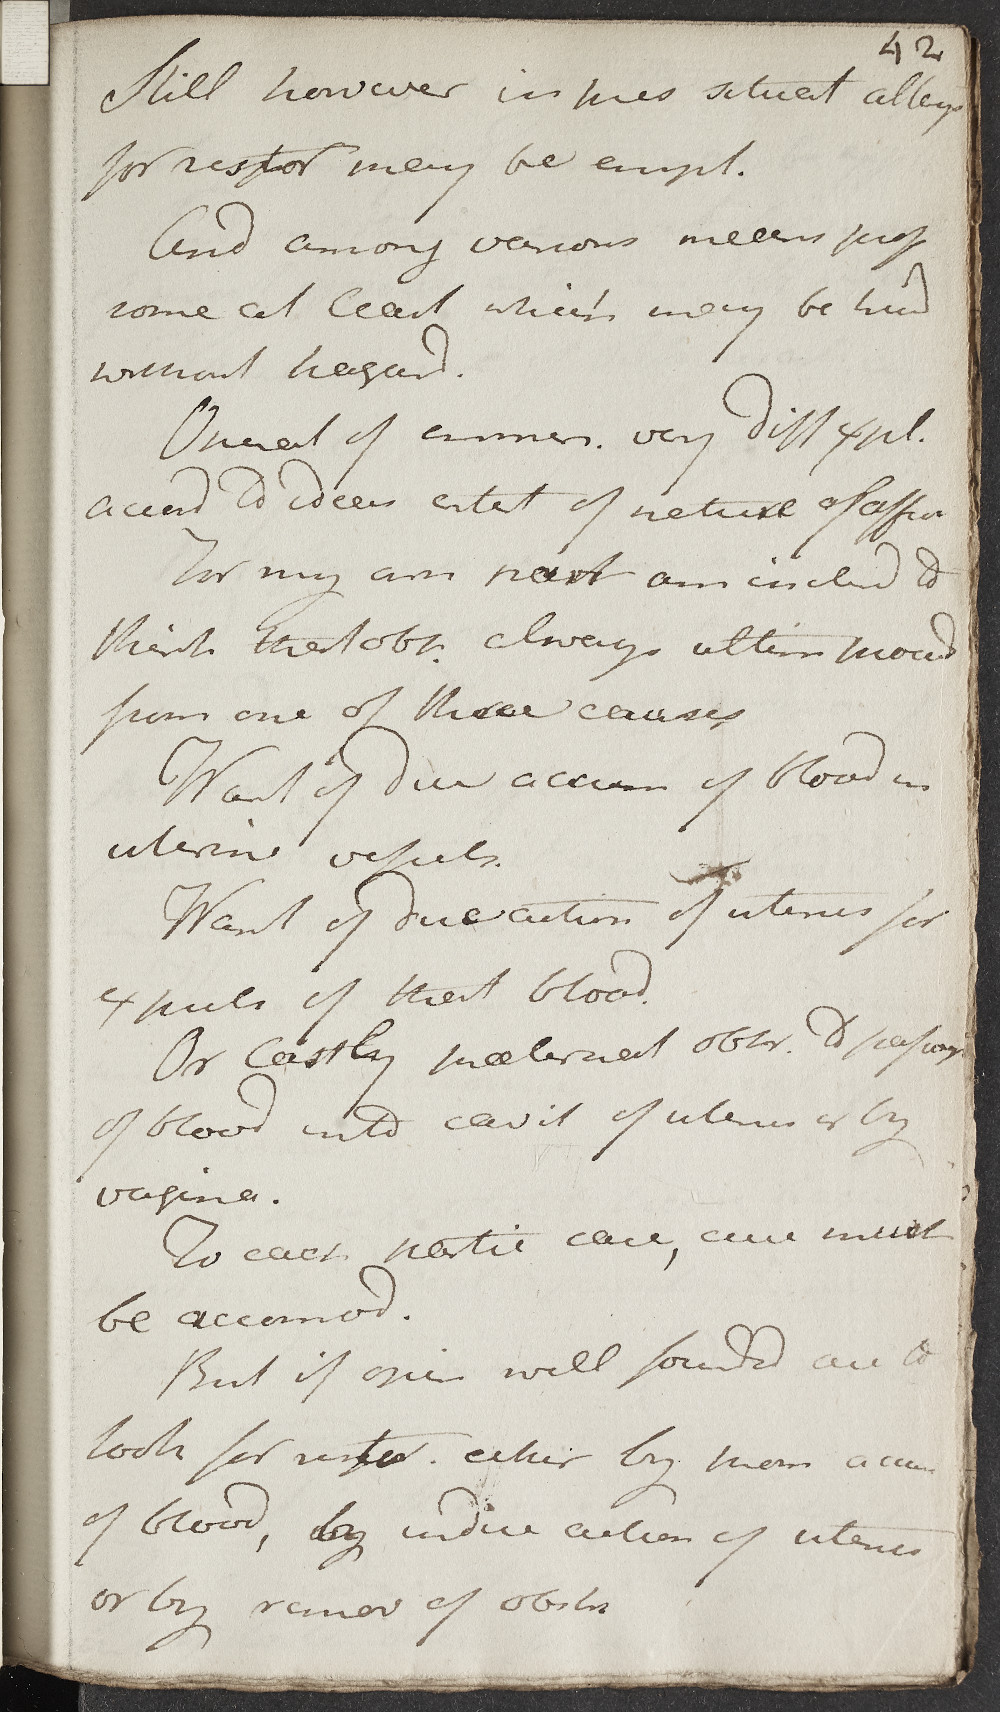 42
Still however in pres situat allways
for restor may be empl.
And among various means prop
some at least which may be tried
without hazard.
Operat of emmen. very diff expl.
accord to ideas entert of nature of affec
For my own part am inclind to
think that obst. always ultim proceed
from one of three causes
Want of due accum of blood in
uterine vessels.
Want of due action of uterus for
expuls of that blood.
Or lastly preternat obstr. to passage
of blood into cavit of uterus or by
vagina.
To each partic case, cure must
be accomod.
But if opin well founded are to
look for restor. either by prom accum
of blood, by induc action of uterus
or by remov of obstr